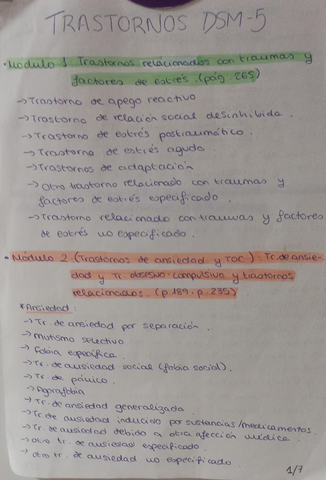 TRASTORNOS DSM-5
• Módulo 1. Trastornos relacionados con traumas y
factores de estrés. (pág 265)
→ Trastorno de apego reactivo
→ Trastorno de relación social desinhibida.
→ Trastorno de estrés postraumático.
→ Trastorno de estrés agudo.
→ Trastornos de adaptación
→ Otro trastorno relacionado con traumas y
factores de estrés especificado.
→ Trastorno relacionado con traumas y factores
de estrés no especificado.
• Módulo 2 (Trastornos de ansiedad y TOC): Tr. de ansie-
dad y Tr. obsesivo-compulsivo y trastornos
relacionados. (p.189, p.235)
* Ansiedad:
→ Tr. de ansiedad por separación.
→ Mutismo selectivo
→ Fobia específica.
→ Tr. de ansiedad social (fobia social).
→ Tr. de pánico.
→ Agorafobia
→ Tr. de ansiedad generalizada.
→ Tr. de ansiedad inducido por sustancias/medicamentos
→ Tr. de ansiedad debido a otra afección médica.
→ Otro tr. de ansiedad especificado.
→ Otro tr. de ansiedad no especificado
1/7